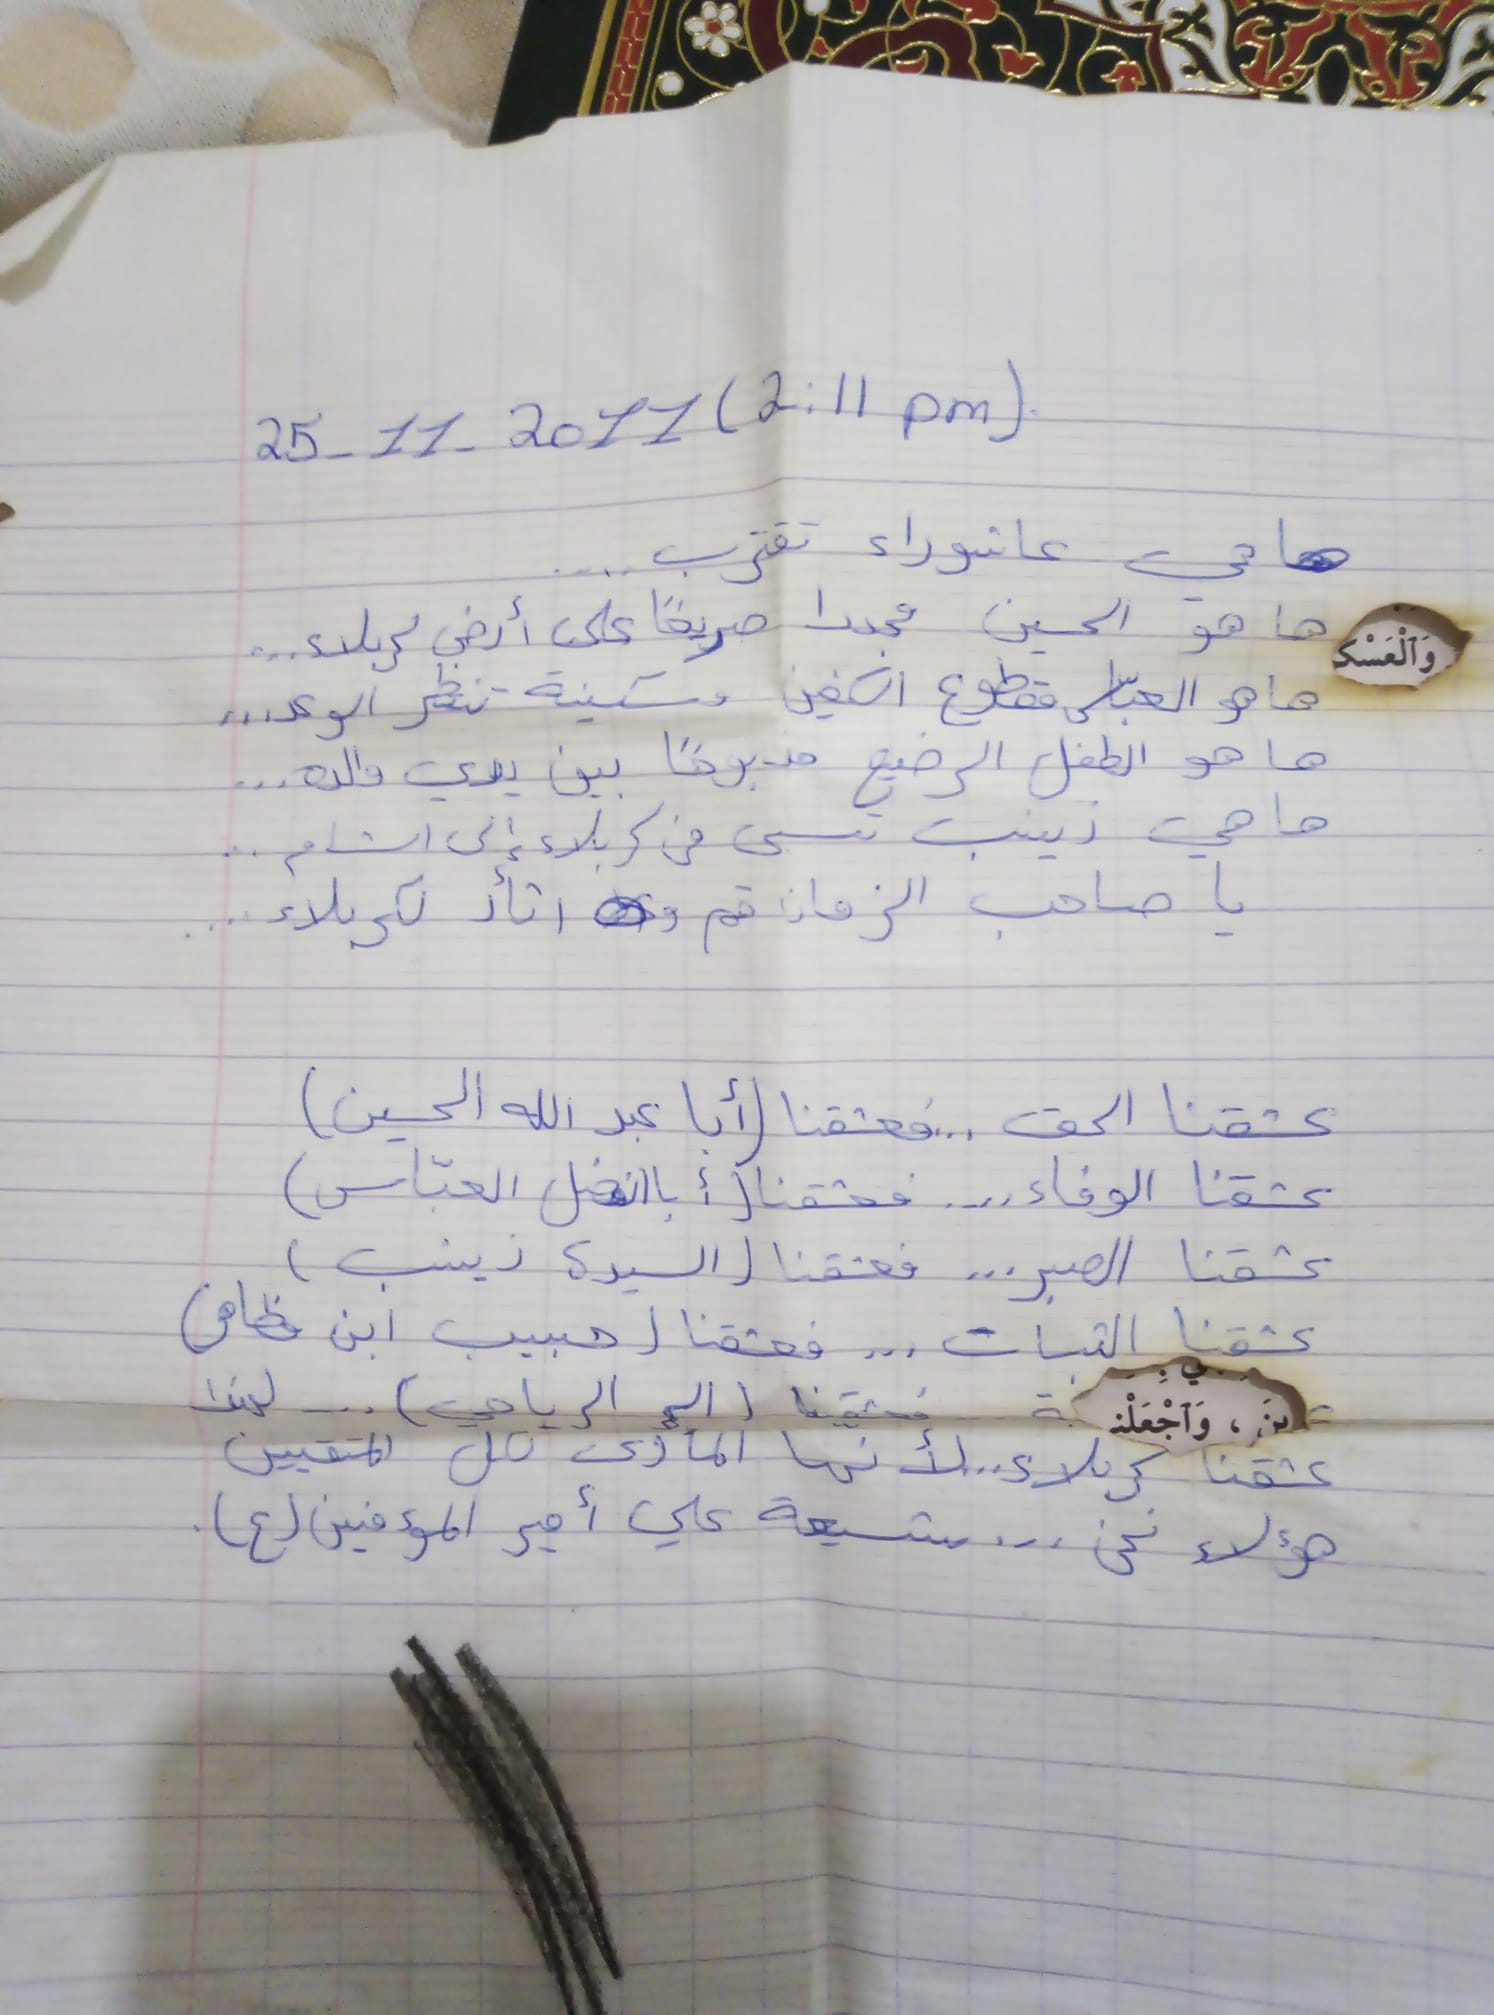 25-11-2011 (2:11 pm).
ها هي عاشوراء تقترب ....
ها هو الحسين مجددا صريعًا على أرض كربلاء...
وَٱلْعَسْكَ
ها هو العبّاس مقطوع الكفين وسكينة تنتظر الوعد...
ها هو الطفل الرضيع مذبوحًا بين يدي والده...
ها هي زينب تسبى من كربلاء إلى الشام ...
يا صاحب الزمان قم و اثأر لكربلاء ...
عشقنا الحق ... فعشقنا (أبا عبد الله الحسين)
عشقنا الوفاء... فعشقنا (أبا الفضل العبّاس)
عشقنا الصبر... فعشقنا (السيدة زينب)
عشقنا الثبات ... فعشقنا (حبيب ابن مظاهر)
ـينَ ، وَٱجْعَلْنـ
ـة فعشقنا (الحر الرياحي) ... لهذا
عشقنا كربلاء.. لأنها المأوى لكل المتقين
هؤلاء نحن ... شيعة علي أمير المؤمنين (ع).